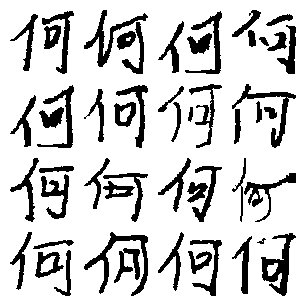 何何何何
何何何何
何何何何
何何何何